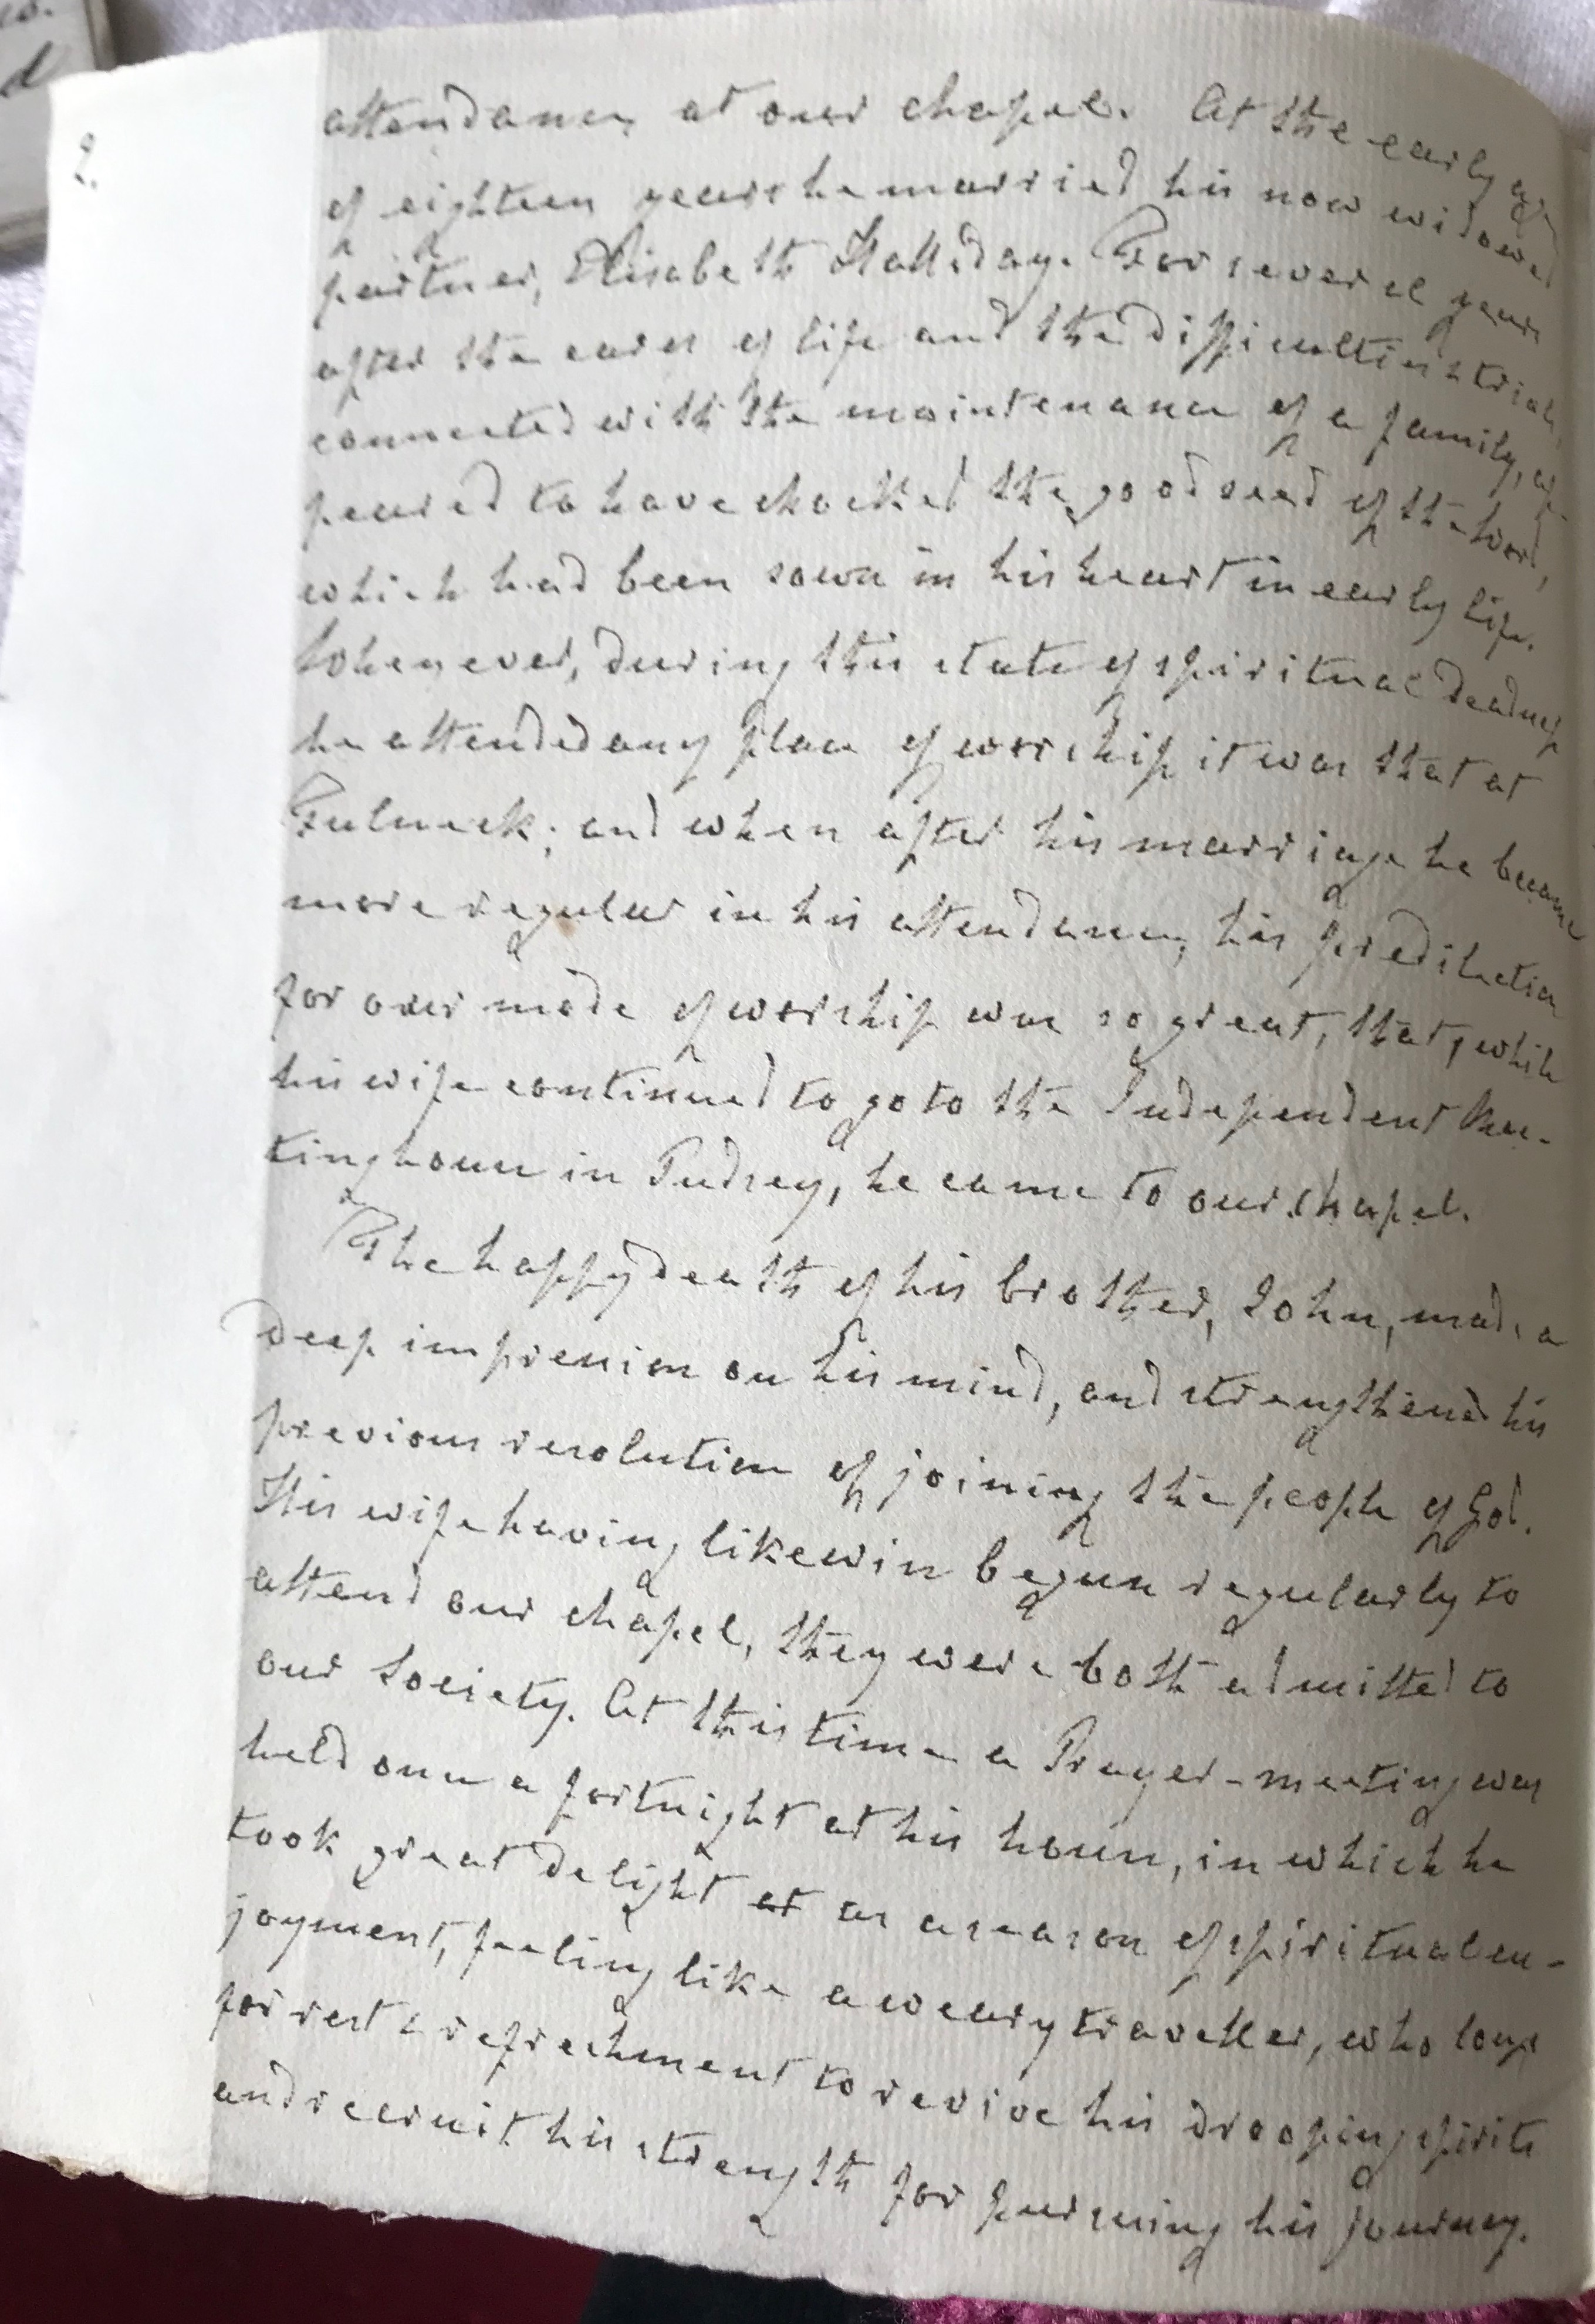 2.
attendance, at our chapel. At the early age
of eighteen years he married his now widowed
partner, Elisabeth Halliday. For several years
after the cares of life and the difficulties & trials,
connected with the maintenance of a family, ap-
peared to have chocked the good seed of the Word,
which had been sown in his heart in early life.
Whenever, during this state of spiritual deadness
he attended any place of worship it was that at
Fulneck; and when after his marriage he became
more regular in his attendance, his predilection
for our mode of worship was so great, that, while
his wife continued to go to the Independent Mee-
tinghouse in Pudsey, he came to our chapel.
The happy death of his brother, John, made a
deep impression on his mind, and strengthened his
previous resolution of joining the people of God.
His wife having likewise begun regularly to
attend our chapel, they were both admitted to
our Society. At this time a Prayer-meeting was
held once a fortnight at his house, in which he
took great delight at as a season of spiritual en-
joyment, feeling like a weary traveller, who longs
for rest & refreshment to revive his drooping spirits
and recruit his strength for pursuing his journey.